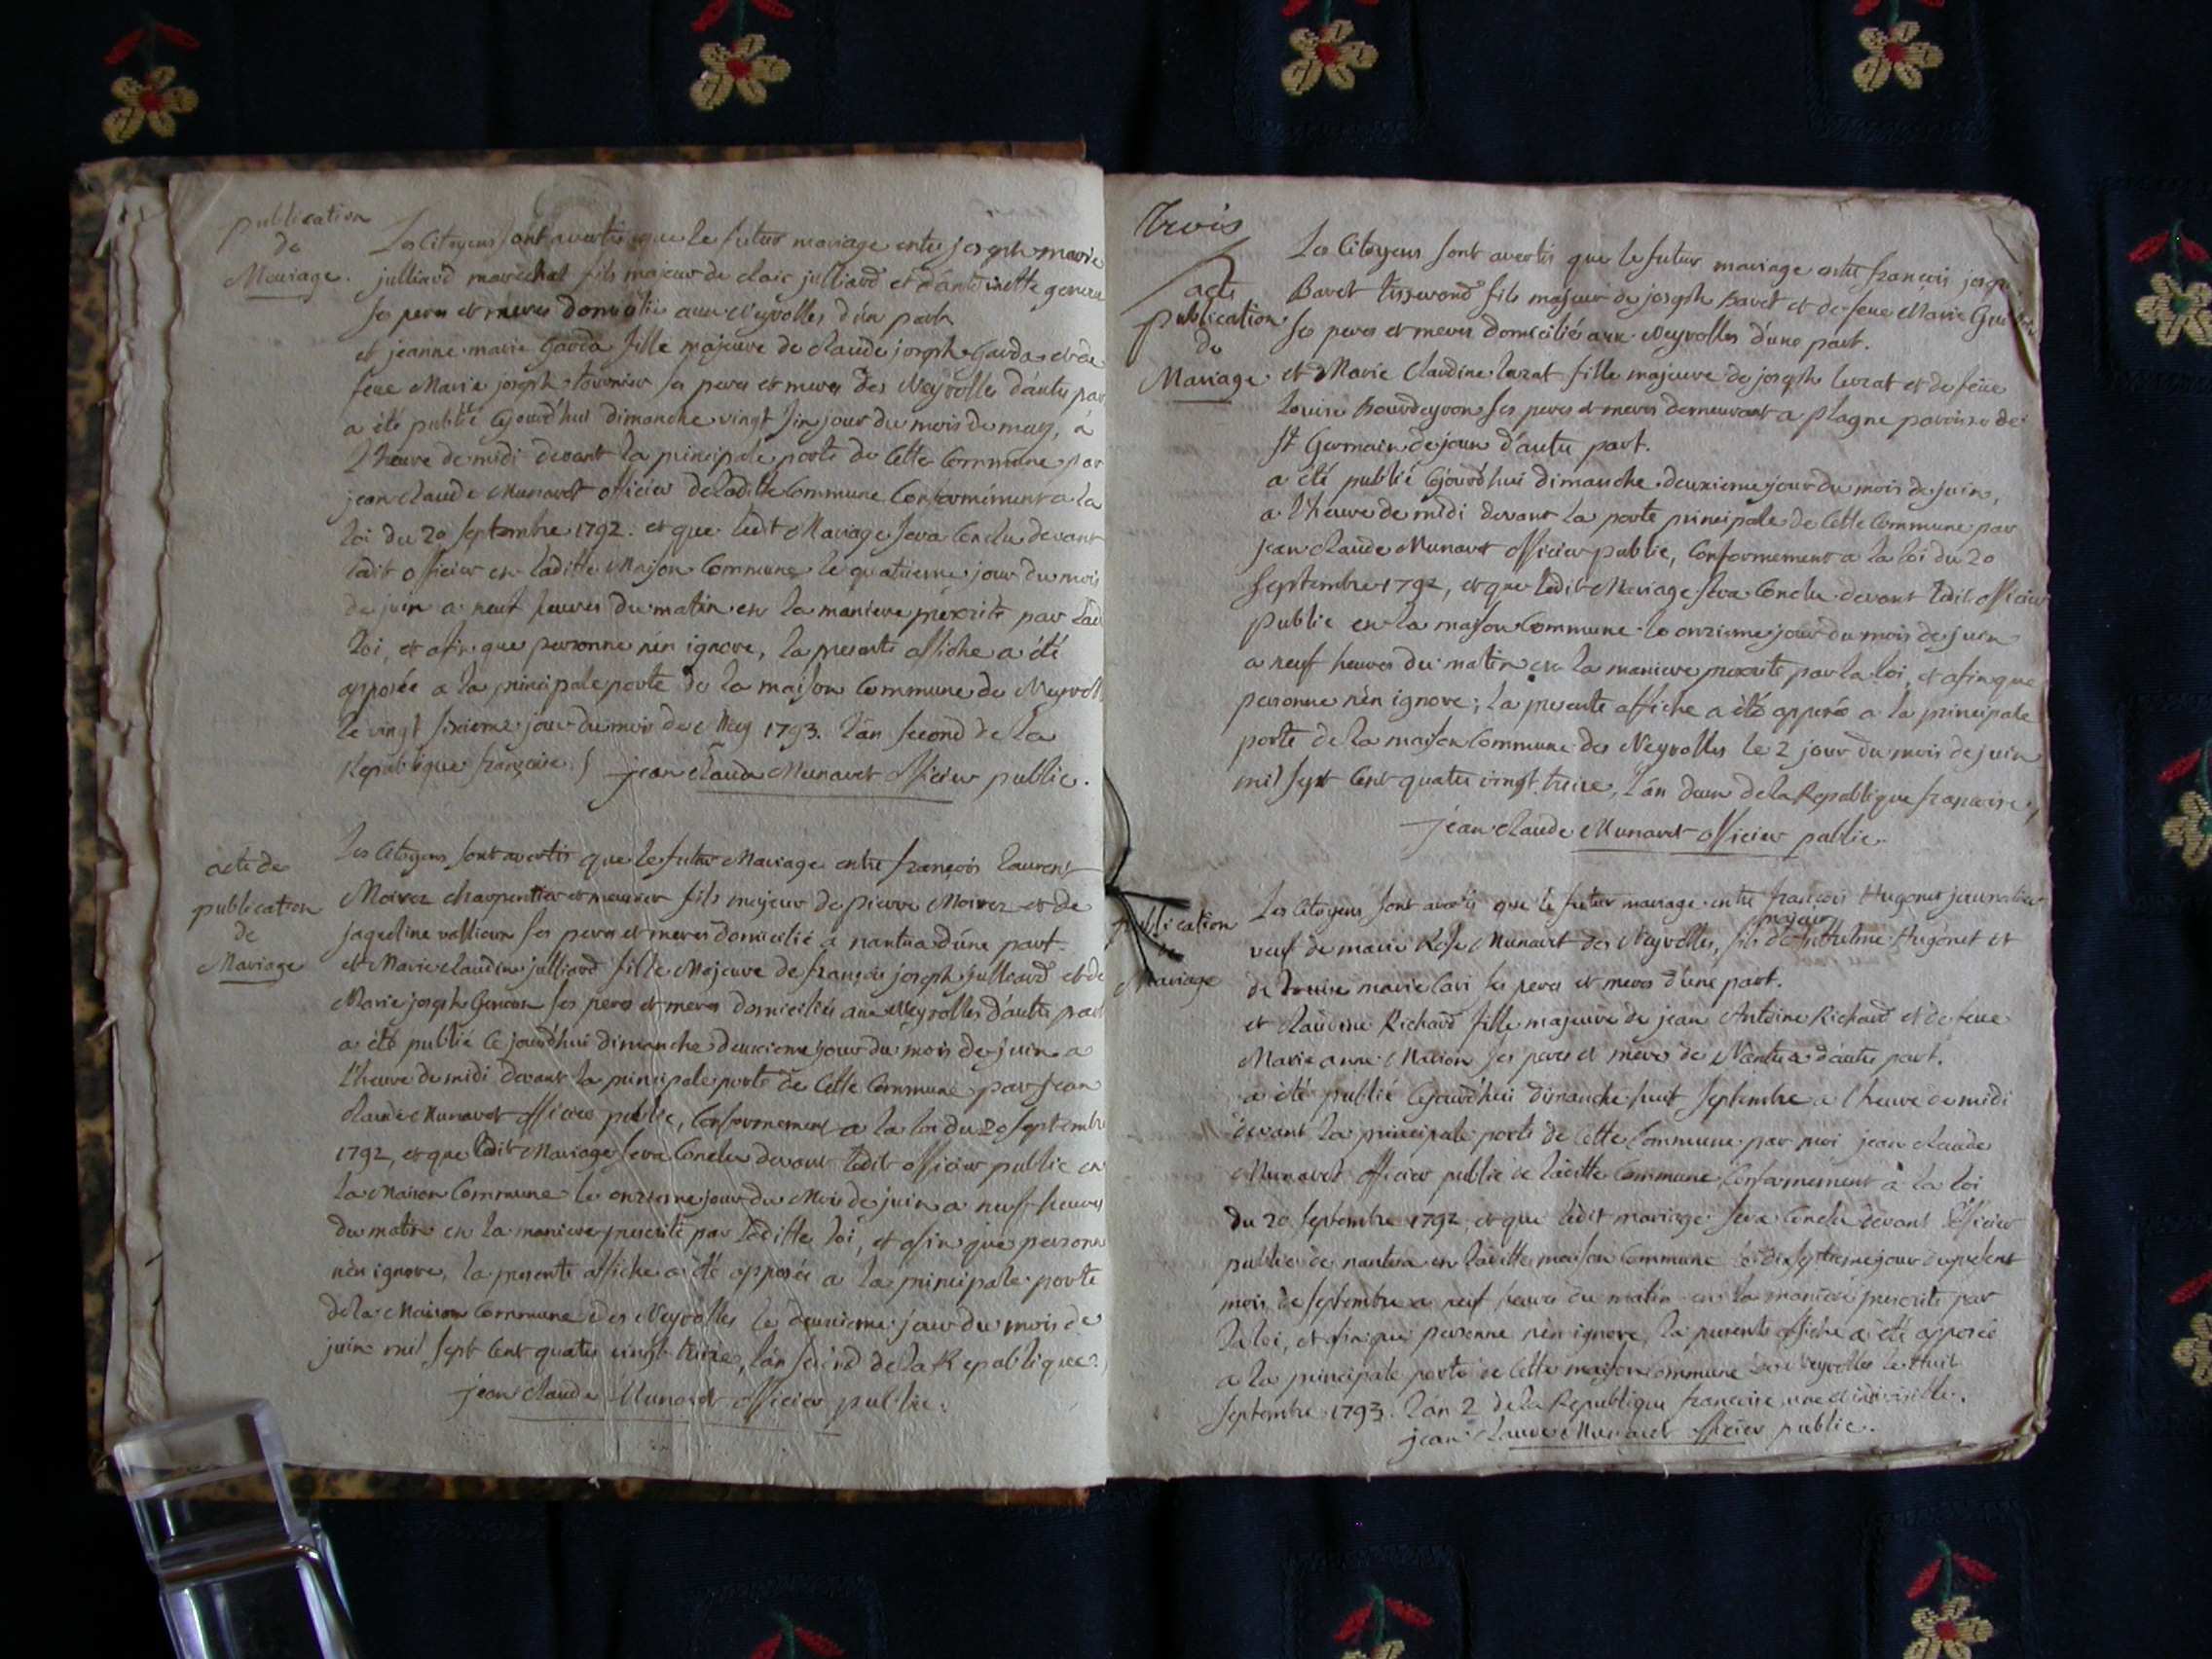 publication
de
Mariage.
Les Citoyens sont avertis que le futur mariage entre joseph marie
julliard maréchal fils majeur de claie julliard et d'antoinette
ses peres et meres domicilié aux Neyrolles d'un part
et jeanne marie Gavda fille majeure de claude joseph Gavda et de
feue Marie joseph tournier ses peres et meres des Neyrolles d'autre par
a été publié Cejourd'hui dimanche vingt six jour du mois de may, à
l'heure de midi devant la principale porte de Cette Commune par
jean claude Munavet officier de ladite Commune Conformément a la
loi du 20 septembre 1792. et que ledt Mariage sera Conclu devant
ledit officier en laditte Maison Commune le quatrieme jour du mois
de juin a neuf heures du matin en la maniere prescrite par lad
loi, et afin que personne n'en ignore, la presente affiche a été
apposée a la principale porte de la maison Commune de Neyroll
le vingt sixieme jour du mois de May 1793. l'an second de la
Republique françoise. jean claude Munavet officier public.
acte de
publication
de
Mariage
Les Citoyens sont avertis que le futur Mariage entre françois laurent
Moirez charpentier et meunier fils majeur de pierre Moirez et de
jaqueline vallieur ses peres et meres domicilié a nantua d'une part
et Marie claudine julliard fille Majeure de françois joseph julliard et de
Marie joseph Genoux ses peres et meres domiciliés aux Neyrolles d'autre part
a été publié Ce jourd'hui dimanche deuxieme jour du mois de juin a
l'heure de midi devant la principale porte de Cette Commune par jean
claude Munavet officier public, Conformement a la loi du 20 septembre
1792, et que ledit Mariage sera Conclu devant ledit officier public en
la Maison Commune le onzieme jour du Mois de juin a neuf heures
du matin en la maniere prescrite par laditte loi, et afin que personne
n'en ignore, la presente affiche a été apposée a la principale porte
de la Maison Commune des Neyrolles le deuxieme jour du mois de
juin mil sept Cent quatre vingt treize, l'an second de la Republique.
jean claude Munavet officier public.
Trois
acte
publication
de
Mariage
Les Citoyens sont avertis que le futur mariage entre françois joseph
Bavet tisserand fils majeur de joseph Bavet et de feue Marie
ses peres et meres domicilié aux Neyrolles d'une part.
et Marie Claudine lurat fille majeure de joseph lurat et de feüe
Louise Bourdeyron ses peres et meres demeurant a plagne paroisse de
St Germain de joux d'autre part.
a été publié Cejourd'hui dimanche deuxieme jour du mois de juin,
a l'heure de midi devant la porte principale de Cette Commune par
jean claude Munavet officier public, Conformement a la loi du 20
septembre 1792, et que ledit Mariage sera Conclu devant ledit officier
public en la maison Commune le onzieme jour du mois de juin
a neuf heures du matin en la maniere prescrite par la loi, et afin que
personne n'en ignore; la presente affiche a été apposée a la principale
porte de la maison Commune des Neyrolles le 2 jour du mois de juin
mil sept Cent quatre vingt treize, l'an deux de la Republique françoise,
jean claude Munavet officier public.
publication
de
Mariage
Les Citoyens sont avertis que le futur mariage entre françois Hugonet journalier
veuf de marie Rose Munavet des Neyrolles, fils majeur d'Anthelme Hugonet et
de Louise marie Cari ses peres et meres d'une part.
et claudine Richard fille majeure de jean Antoine Richard et de feue
Marie anne Marion ses peres et meres de Nantua d'autre part.
a été publié Cejourd'hui dimanche huit septembre a l'heure de midi
devant la principale porte de Cette Commune par moi jean claude
Munavet officier public de laditte Commune Conformement a la loi
du 20 septembre 1792, et que ledit mariage sera Conclu devant l'officier
public de nantua en laditte maison Commune le dix septieme jour du present
mois de septembre a neuf heures du matin en la maniere prescrite par
la loi, et afin que personne n'en ignore, la presente affiche a été apposée
a la principale porte de Cette maison Commune des Neyrolles le huit
septembre 1793. l'an 2 de la Republique françoise, une et indivisible.
jean claude Munavet officier public.